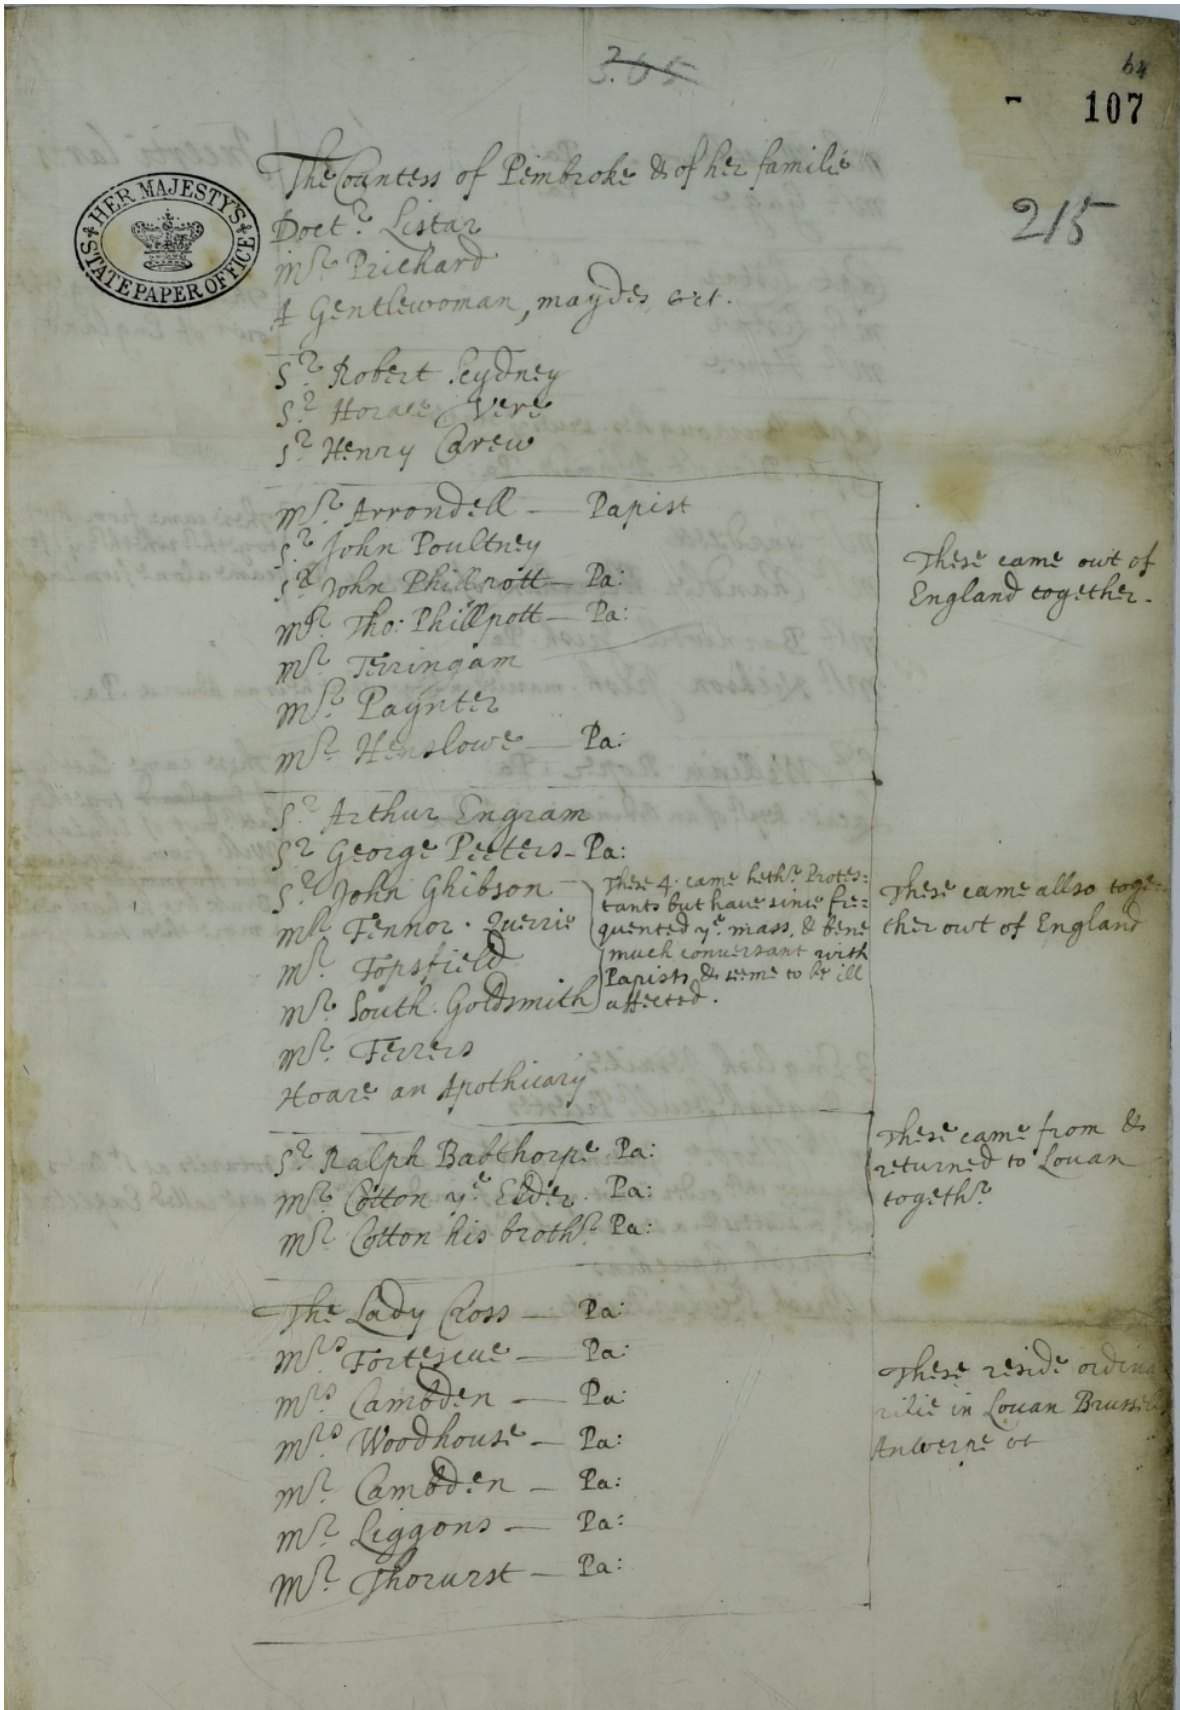 3.65
64
107
215
HER MAJESTY'S
STATE PAPER OFFICE
The Countess of Pembroke & of her familie
Doctr. Listar
Mr. Prichard
A Gentlewoman, maydes, &ct.
Sr. Robert Seydney
Sr. Horace Vere
Sr. Henry Carew
Mr. Arrondell — Papist
Sr. John Poultney
Sr. John Phillpott — Pa:
Mr. Tho: Phillpott — Pa:
Mr. Terringam
Mr. Paynter
Mr. Henslowe — Pa:
These came owt of
England together.
Sr. Arthur Engram
Sr George Peeters - Pa:
Sr. John Ghibson
Mr. Fennor. Querrie
Mr. Topsfield
Mr. South. Goldsmith
These 4. came hethr. Protes=
tants but have since fre=
quented ye. mass, & bene
much conversant with
Papists, & seeme to be ill
affected.
Mr. Ferrers
Hoare an Apothicary
These came allso toge=
ther owt of England
Sr. Ralph Babthorpe Pa:
Mr. Cotton ye. Elder. Pa:
Mr. Cotton his brothr. Pa:
These came from &
returned to Louan
togethr.
The Lady Cross — Pa:
Mrs. Fortescue — Pa:
Mrs. Cambden — Pa:
Mrs. Woodhouse — Pa:
Mr. Cambden — Pa:
Mr. Liggons — Pa:
Mr. Thorurst — Pa:
These reside ordina
rilie in Louan Brussells
Anwerpe &c